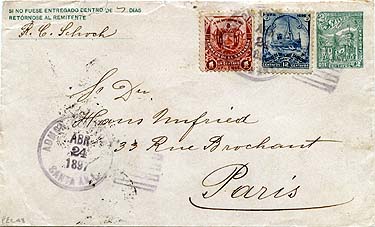 SI NO FUESE ENTREGADO DENTRO DE DIAS
RETÓRNESE AL REMITENTE
R. C. Schoch
Sr Dn.
Hans Umfried
33 Rue Brochant
Paris
ABR
24
1897
SANTA